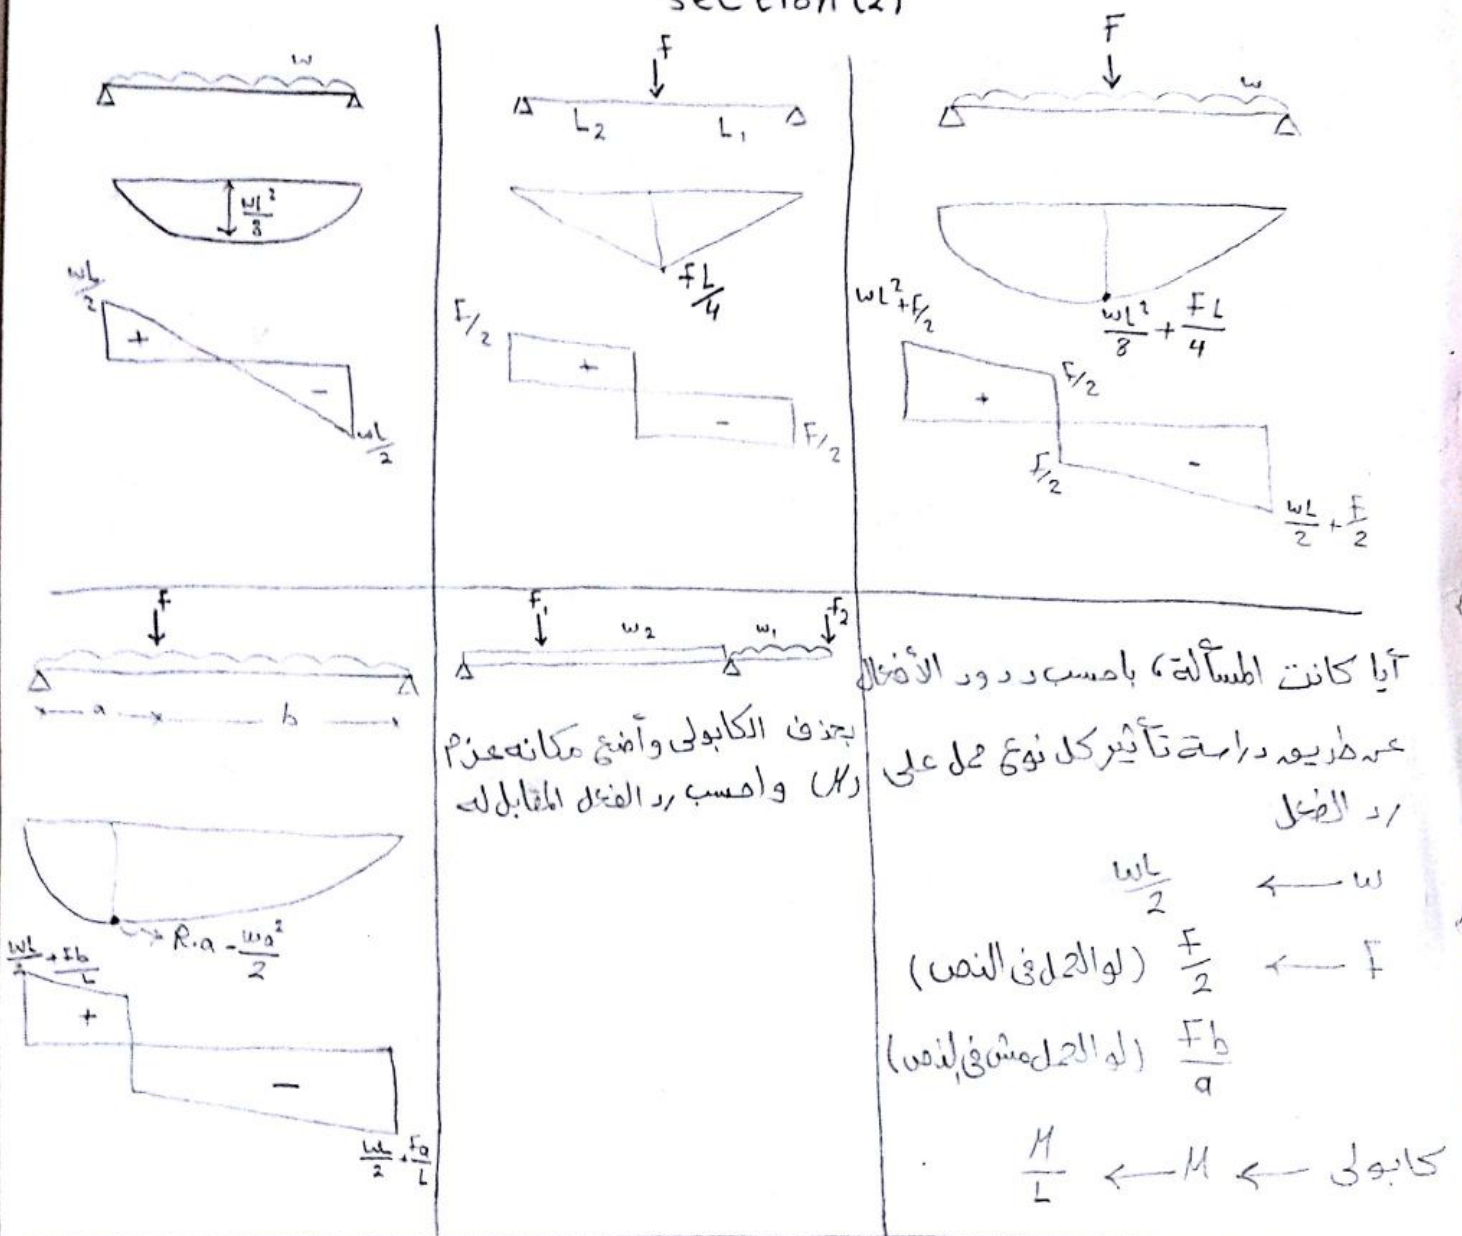 section (2)
w
wL²/8
wL/2
+
-
wL/2
F
L₂ L₁
FL/4
F/2
+
-
F/2
F
w
wL²/8 + FL/4
wL²+F/2
F/2
+
F/2
-
wL/2 + F/2
F
a b
R.a - wa²/2
wL/2 + Fb/L
+
-
wL/2 + Fa/L
F₁ w₂ w₁ F₂
بحذف الكابولى وأضع مكانه عزم
(M) واحسب رد الفعل المقابل له
أيا كانت المسألة، باحسب ردود الأفعال
عن طريق دراسة تأثير كل نوع حمل على
رد الفعل
w ← wL/2
F ← F/2 (لو الحمل فى النص)
Fb/a (لو الحمل مش فى النص)
كابولى ← M ← M/L